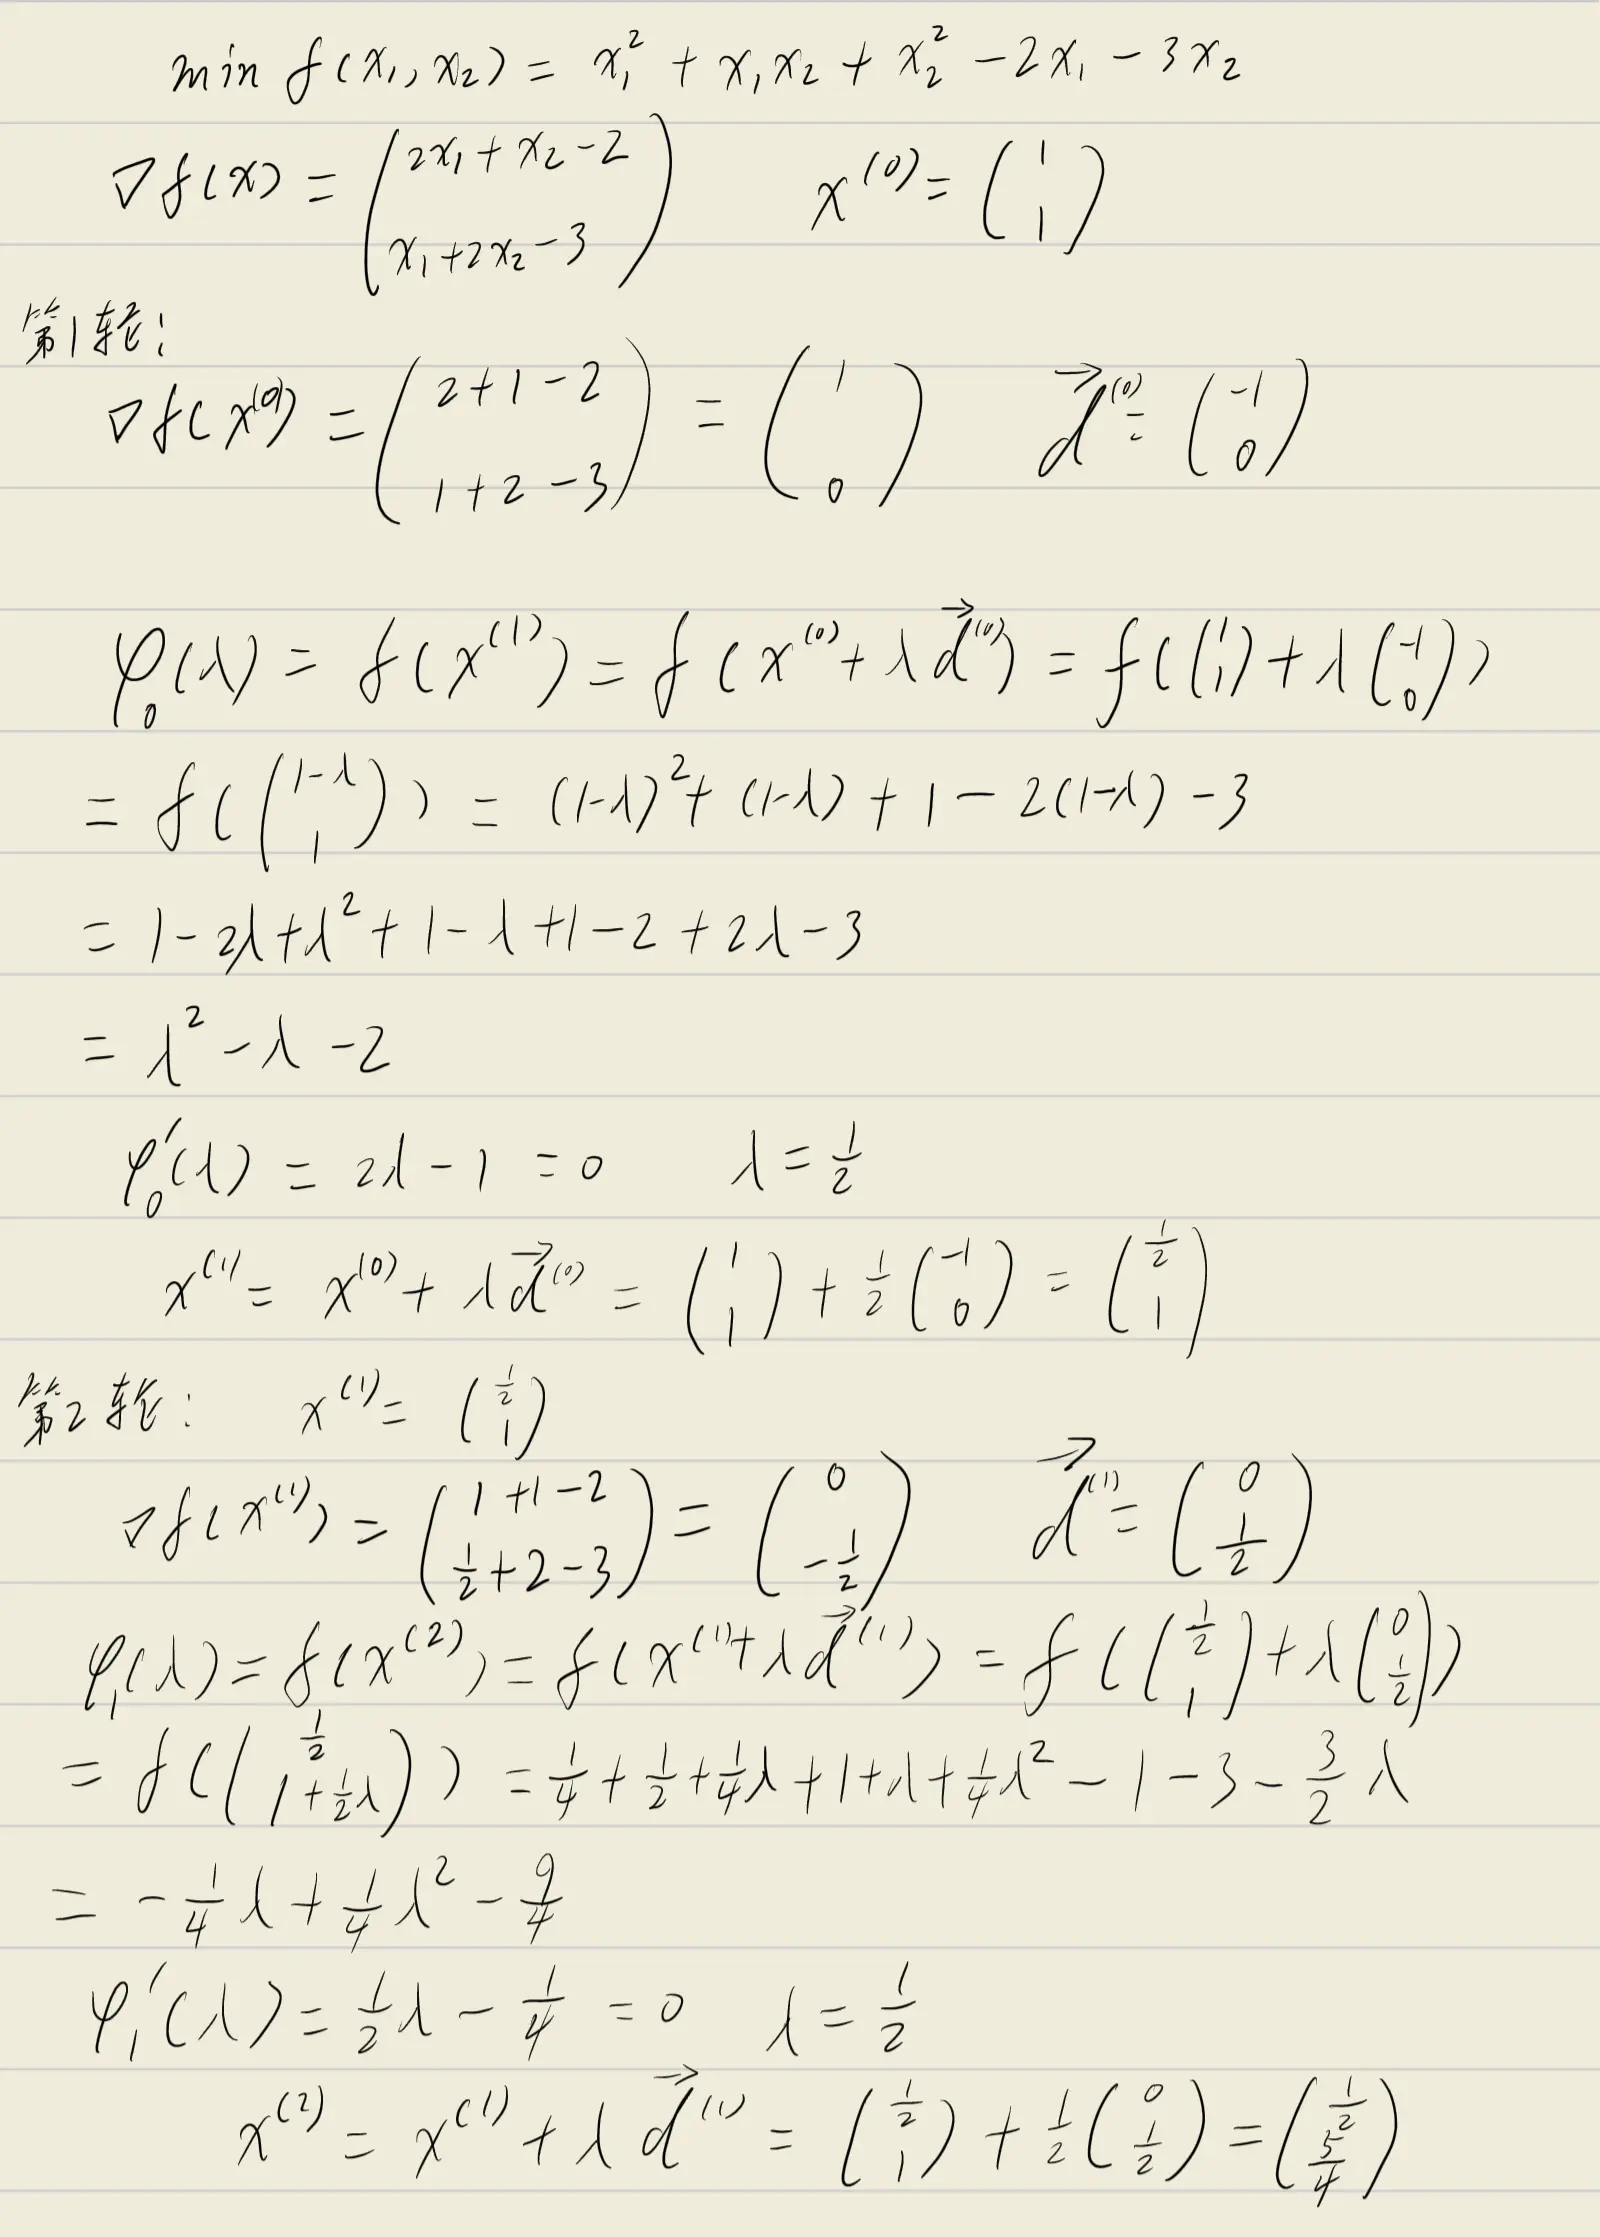 min f(x₁, x₂) = x₁² + x₁x₂ + x₂² - 2x₁ - 3x₂
∇f(x) = (2x₁ + x₂ - 2; x₁ + 2x₂ - 3) x⁽⁰⁾ = (1; 1)
第1轮:
∇f(x⁽⁰⁾) = (2 + 1 - 2; 1 + 2 - 3) = (1; 0) d⃗⁽⁰⁾ = (-1; 0)
φ₀(λ) = f(x⁽¹⁾) = f(x⁽⁰⁾ + λd⃗⁽⁰⁾) = f((1; 1) + λ(-1; 0))
= f((1-λ; 1)) = (1-λ)² + (1-λ) + 1 - 2(1-λ) - 3
= 1 - 2λ + λ² + 1 - λ + 1 - 2 + 2λ - 3
= λ² - λ - 2
φ₀′(λ) = 2λ - 1 = 0 λ = 1/2
x⁽¹⁾ = x⁽⁰⁾ + λd⃗⁽⁰⁾ = (1; 1) + 1/2(-1; 0) = (1/2; 1)
第2轮: x⁽¹⁾ = (1/2; 1)
∇f(x⁽¹⁾) = (1 + 1 - 2; 1/2 + 2 - 3) = (0; -1/2) d⃗⁽¹⁾ = (0; 1/2)
φ₁(λ) = f(x⁽²⁾) = f(x⁽¹⁾ + λd⃗⁽¹⁾) = f((1/2; 1) + λ(0; 1/2))
= f((1/2; 1 + 1/2λ)) = 1/4 + 1/2 + 1/4λ + 1 + λ + 1/4λ² - 1 - 3 - 3/2λ
= -1/4λ + 1/4λ² - 9/4
φ₁′(λ) = 1/2λ - 1/4 = 0 λ = 1/2
x⁽²⁾ = x⁽¹⁾ + λd⃗⁽¹⁾ = (1/2; 1) + 1/2(0; 1/2) = (1/2; 5/4)